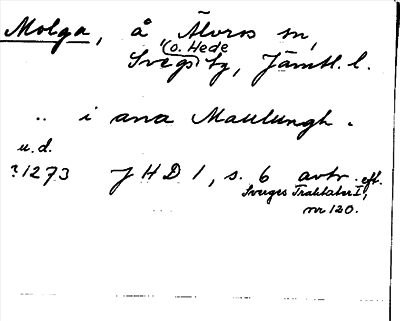 Molga, å Älvros sn,
(o. Hede)
Svegs tg, Jämtl. l.
.. i ana Maulungh .
u.d.
?1273 JHD 1, s. 6 avtr. eft.
Sveriges Traktater I,
nr 120.